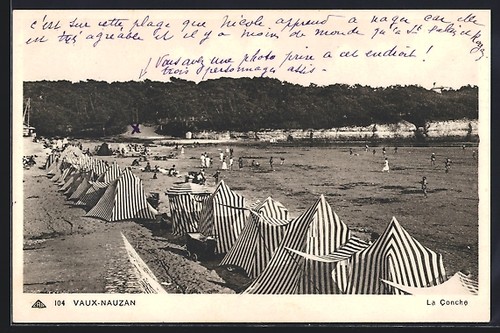 c'est sur cette plage que Nicole apprend a nager car elle
est très agréable et il y a moins de monde qu'a St
Vous avez une photo prise a cet endroit !
trois personnages assis.
X
104 VAUX-NAUZAN
La Conche